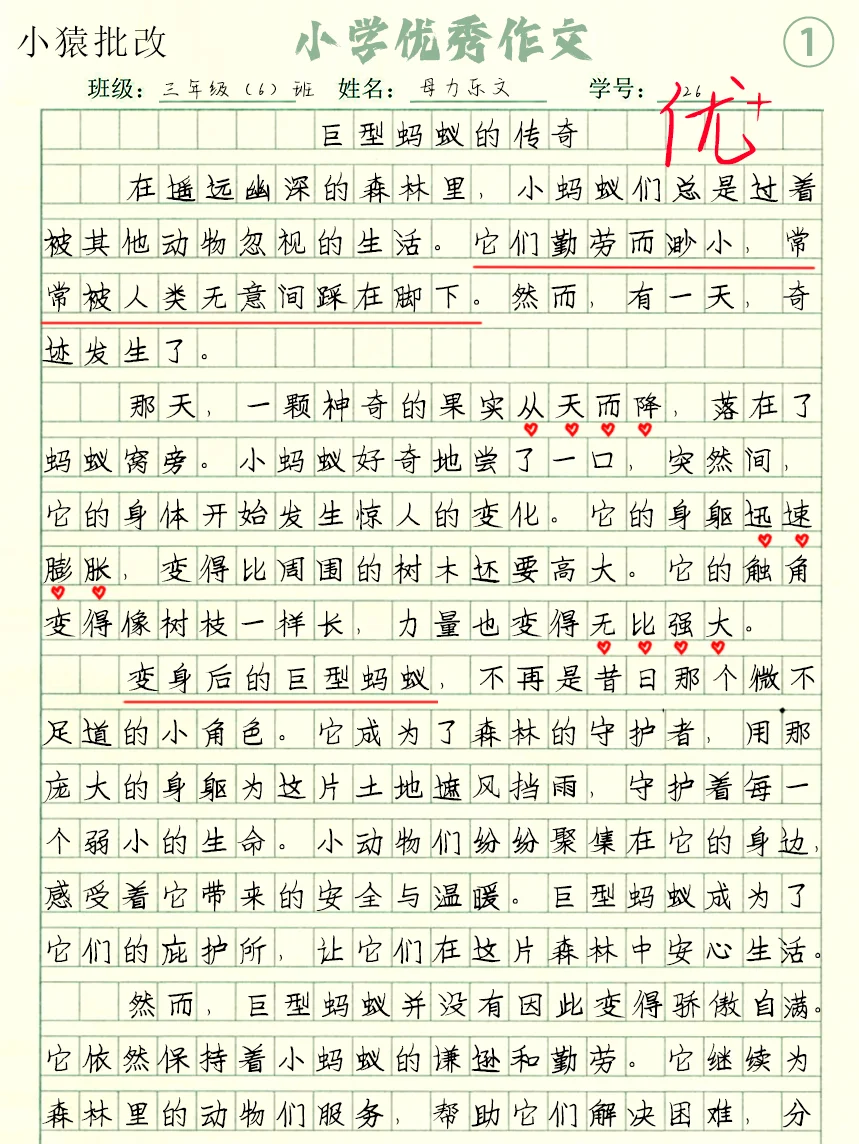 小猿批改
小学优秀作文
1
班级：三年级（6）班 姓名：母力乐文 学号：26
优+
巨型蚂蚁的传奇
在遥远幽深的森林里，小蚂蚁们总是过着
被其他动物忽视的生活。它们勤劳而渺小，常
常被人类无意间踩在脚下。然而，有一天，奇
迹发生了。
那天，一颗神奇的果实从天而降，落在了
蚂蚁窝旁。小蚂蚁好奇地尝了一口，突然间，
它的身体开始发生惊人的变化。它的身躯迅速
膨胀，变得比周围的树木还要高大。它的触角
变得像树枝一样长，力量也变得无比强大。
变身后的巨型蚂蚁，不再是昔日那个微不
足道的小角色。它成为了森林的守护者，用那
庞大的身躯为这片土地遮风挡雨，守护着每一
个弱小的生命。小动物们纷纷聚集在它的身边，
感受着它带来的安全与温暖。巨型蚂蚁成为了
它们的庇护所，让它们在这片森林中安心生活。
然而，巨型蚂蚁并没有因此变得骄傲自满。
它依然保持着小蚂蚁的谦逊和勤劳。它继续为
森林里的动物们服务，帮助它们解决困难，分